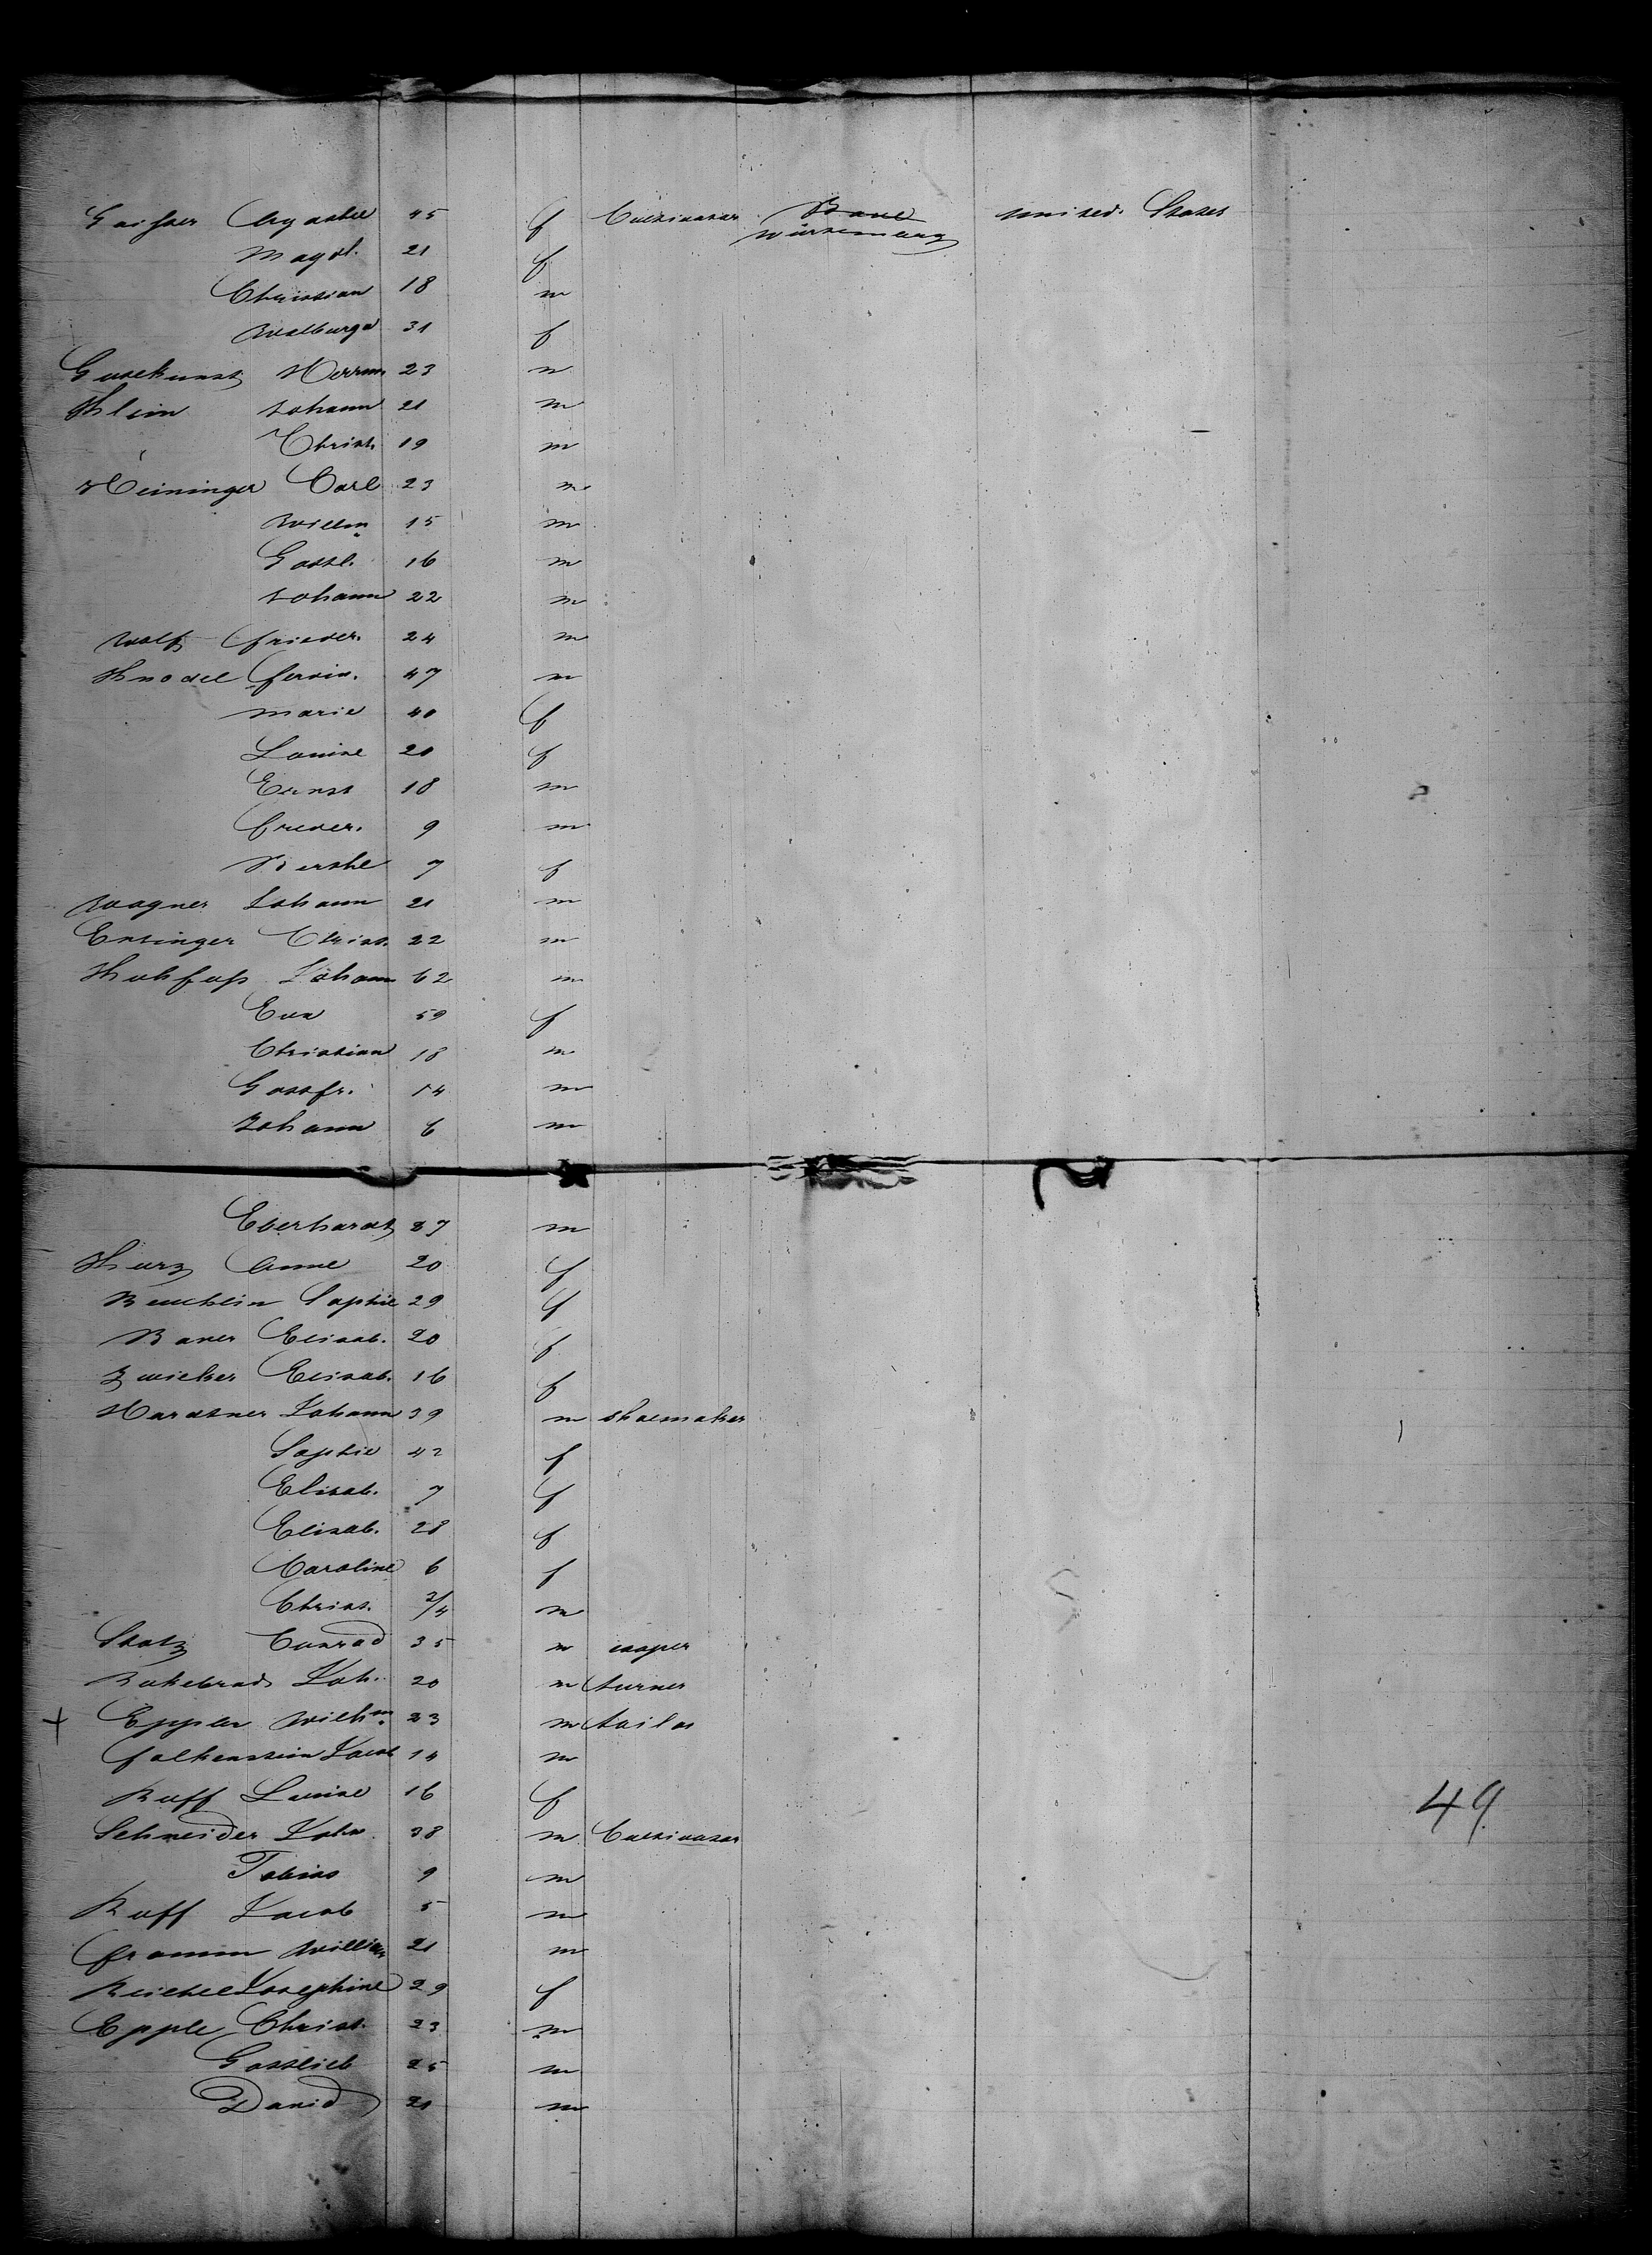 Gaisser Agathe 45 f Cultivator Bade united States
Würtemberg
Magd. 21 f
Christian 18 m
Walburga 31 f
Gutekunst Herrm 23 m
Klein Johann 21 m
Christ. 19 m
Heininger Carl 23 m
Willm 15 m
Gottl. 16 m
Johann 22 m
Wolf frieder. 24 m
Knodel ferdin. 47 m
Marie 40 f
Louise 20 f
Ernst 18 m
frieder. 9 m
Berthe 7 f
Wagner Johann 21 m
Ensinger Christ. 22 m
Johann 62 m
Eva 59 f
Christian 18 m
Gottfr. 14 m
Johann 6 m
Eberhardt 27 m
Kurz Anne 20 f
Reuchlin Sophie 29 f
Bauer Elisab. 20 f
Zwicker Elisab. 16 f
Johann 39 m shoemaker
Sophie 42 f
Elisab. 7 f
Elisab. 28 f
Caroline 6 f
Christ. 2/4 m
Stotz Conrad 35 m cooper
Joh. 20 m turner
+ Eppler Wilhm 23 m tailor
falkenstein Jacob 14 m
Ruff Louise 16 f
49
Schneider John 38 m Cultivator
Tobias 9 m
Ruff Jacob 5 m
fromm William 21 m
Reichel Josephine 29 f
Epple Christ. 23 m
Gottlieb 25 m
David 21 m